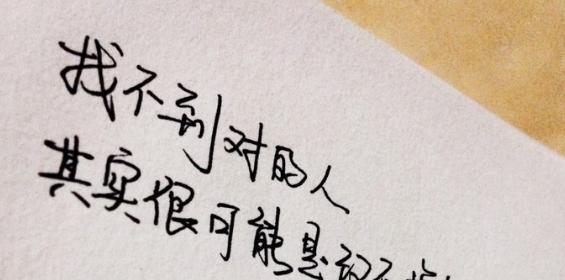 找不到对的人
其实很可能是